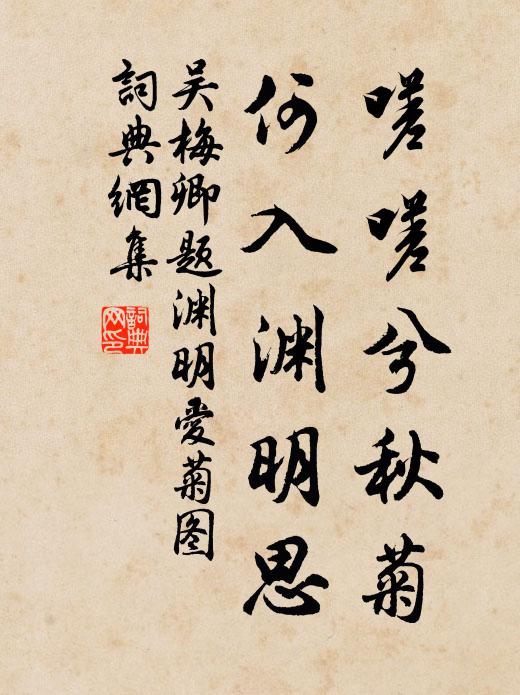 嗟嗟兮秋菊
何入渊明思
吴梅卿题渊明爱菊图
词典網集
詞典网印